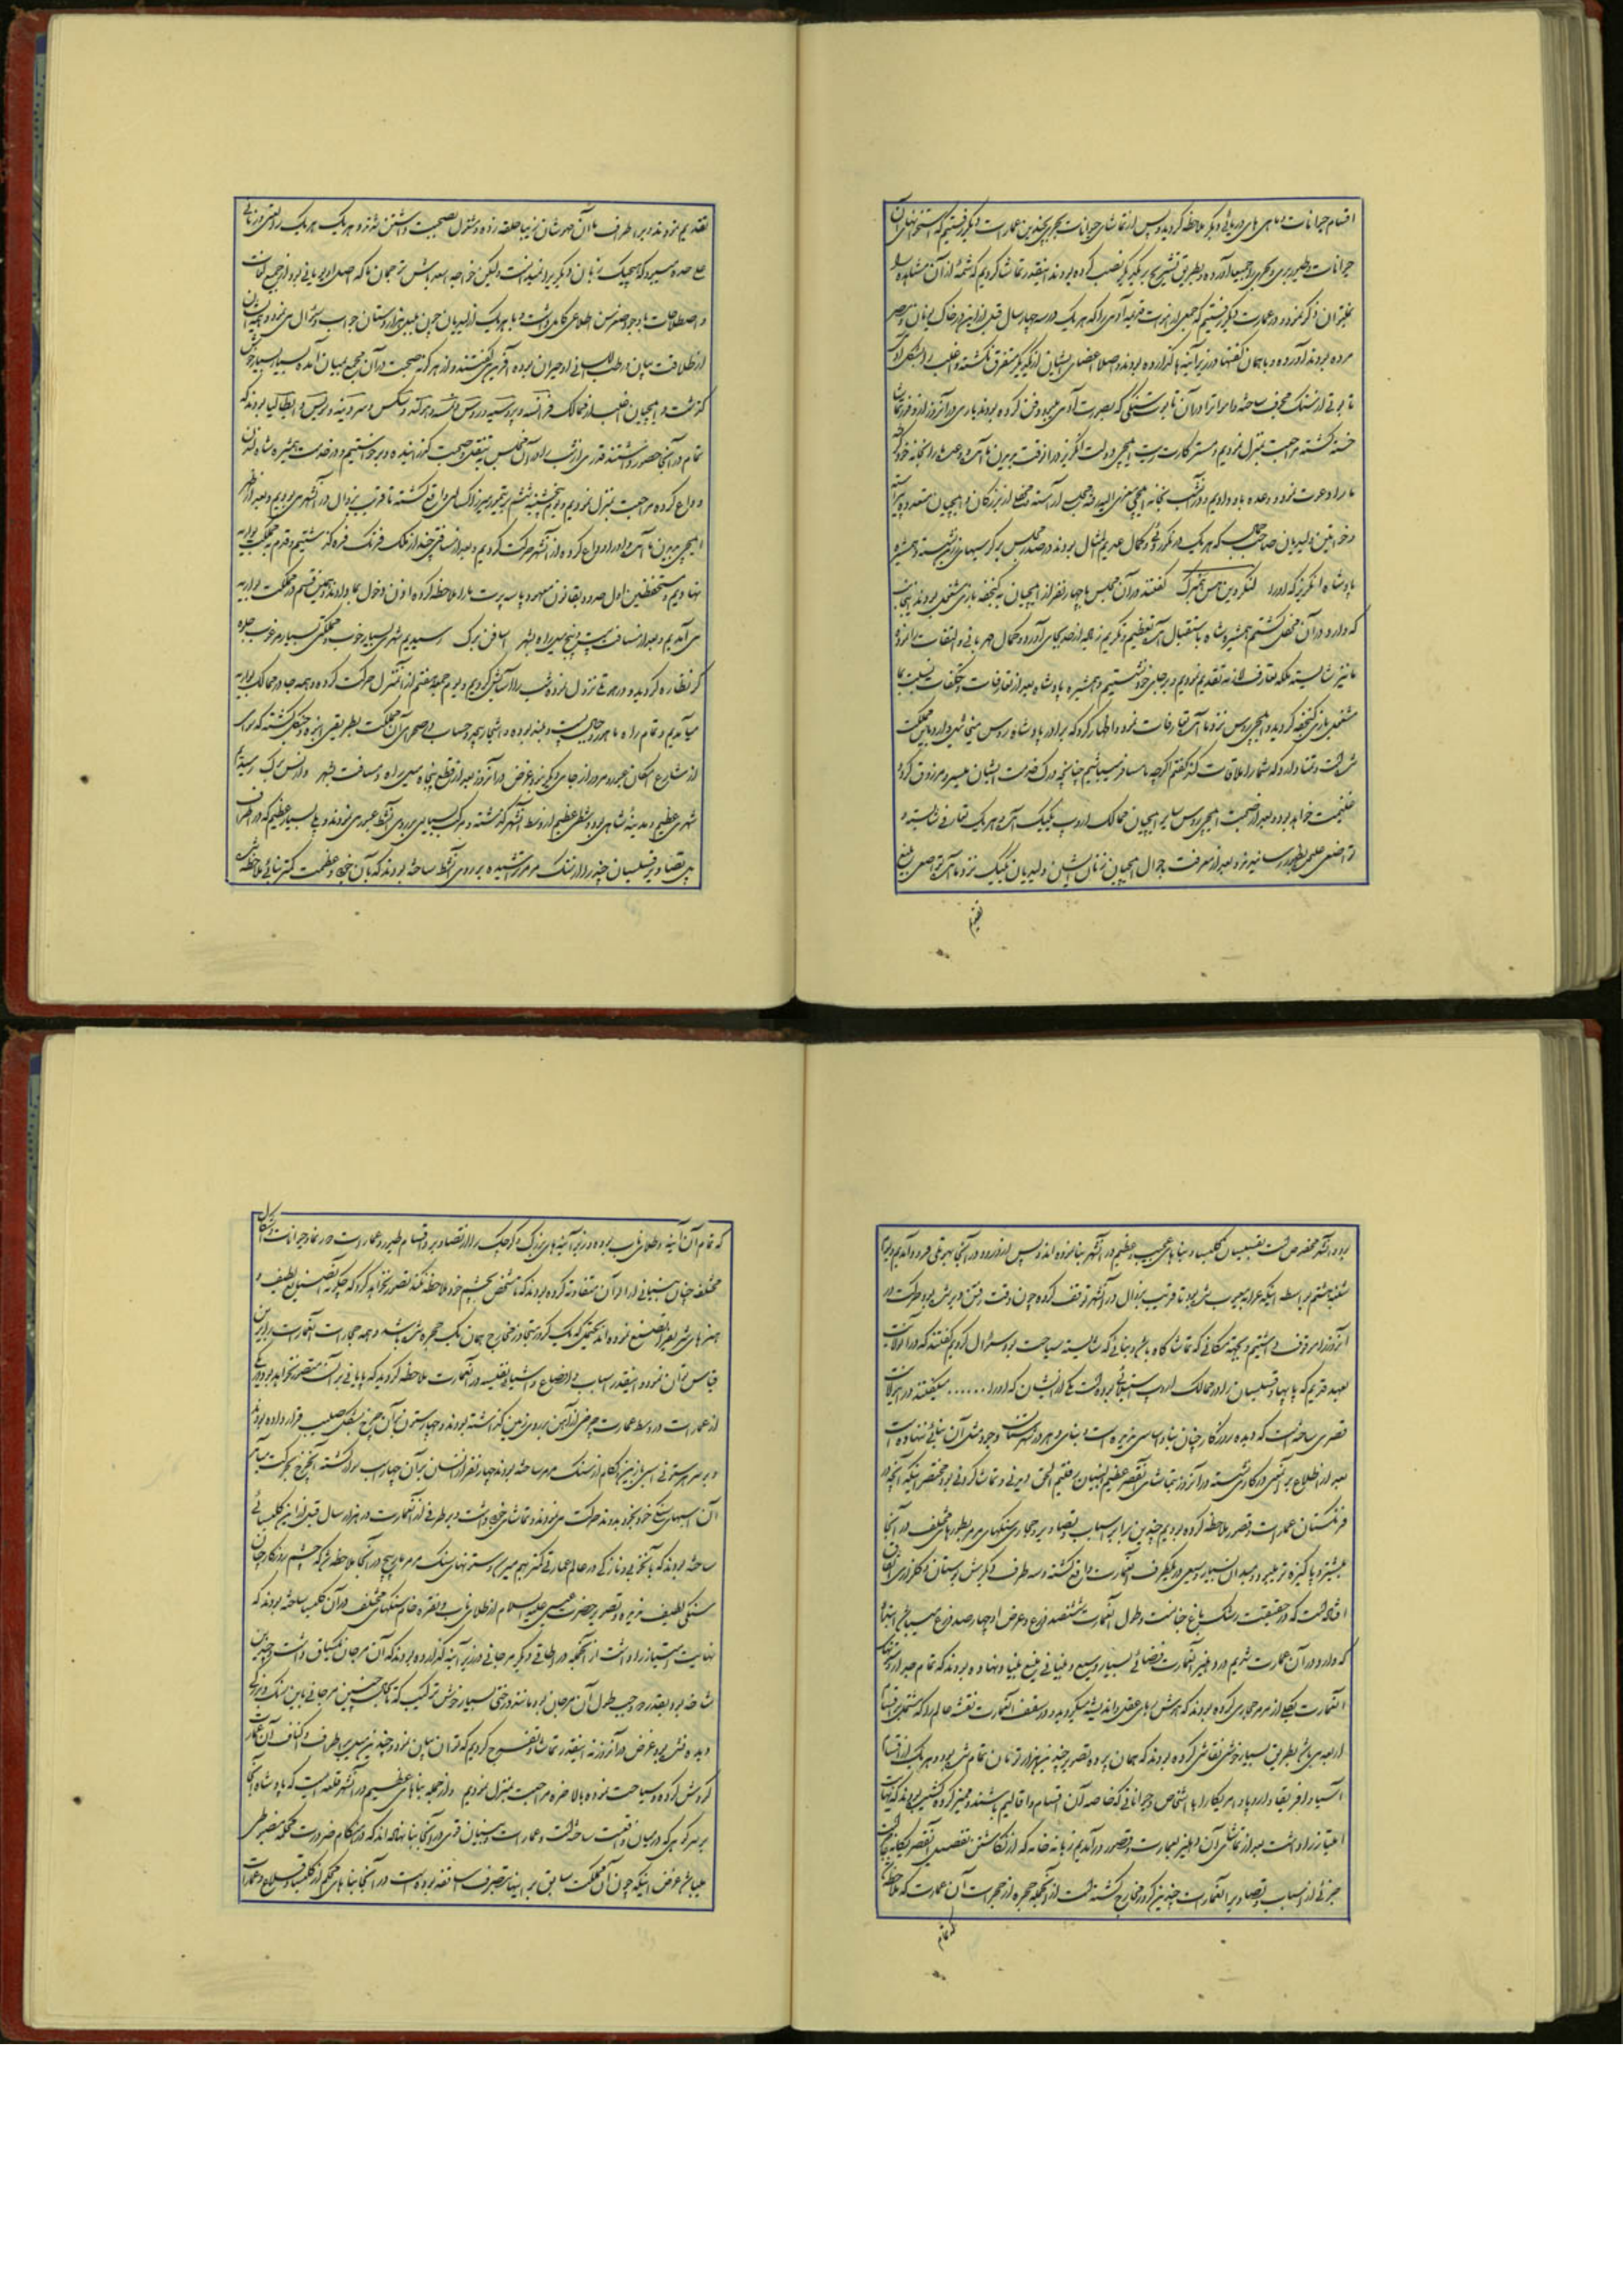 اقسام حیوانات و ماهی های دریائی دیگر ملاحظه گردید و پس از تماشای حیوانات بحری بچندین عمارت دیگر رفتیم که استخوانهای آن
حیوانات و طیور بری و بحری را جمیعا آورده و بطریق تشریح بر یکدیگر نصب کرده بودند اینقدر تماشا کردیم که شمه از آن مشاهده را
نمیتوان ذکر نمود و در عمارت دیگر رفتیم که آدمی را که هر یک در سه چهار سال قبل از این در خاک یونان و مصر
مرده بودند آورده و با همان کفنها در زیر آئینه ها گذارده بودند و اصلا اعضای ایشان از یکدیگر متفرق نگشته و اغلب را بشکل آدم
تابوتی از سنگ مجوف ساخته و امرا را در آن تابوت سنگی که بصورت آدمی بود دفن کرده بودند باری در آنروز از وفور تماشا
خسته گشته مراجعت بمنزل نمودیم و مستر کارت رایت ایلچی دولت انگریز در آنوقت بدیدن ما آمده و عصر ما را بخانه خود
ما را دعوت نمود و وعده باو دادیم و در آنشب بخانه ایلچی معزی الیه رفته مجلس آراسته و محفل از بزرگان و ایلچیان متعدد پیراسته
و خواتین و دلبریان صاحب جمال که هر یک در نکوروئی و کمال عدیم المثال بودند در صدر مجلس بر کرسیها زرین نشسته و همشیره
پادشاه انگریز که او را لنکروین هس همبرک گفتند در آن مجلس با چهار نفر از ایلچیان به گنجفه بازی مشغول بودند اینجانب
که وارد در آن محفل گشتم همشیره شاه باستقبال آمده تعظیم و تکریم زیاده از حد بجای آورد و کمال مهربانی و التفات را نمود
ما نیز شایسته ملکه تعارف شاهانه تقدیم نمودیم و بر جای خود نشستیم و همشیره پادشاه بعد از تعارفات و تکلفات نسبت بما
مشغول بازی گنجفه گردید و ایلچی روس نزد ما آمده تعارفات نمود و اظهار کرد که برادر پادشاه روس میخائیل وارد باین مملکت
شده است و تمنا دارد که شما را ملاقات کند گفتم اگر چه ما مسافر میباشیم چنانچه درک خدمت ایشان میسر و مرزوق گردد
غنیمت خواهد بود و بعد از صحبت ایلچی روس سایر ایلچیان ممالک اروپ یک یک آمده هر یک تعارف شایسته و
تواضعی علیحده بظهور رسانیدند و بعد از معرفت بحوال ایلچیان زنان ایشان و دلبریان یک یک نزد ما آمده تواضعی بلیغ
تقدیم
تقدیم نمودند و بر اطراف ما آن مهوشان زیبا حلقه زده و مشغول بصحبت داشتن شدند و هر یک هر یک را لغتی و زبانی
علیحده میبود که هیچیک زبان دیگر را نمیدانست ولیکن خواجه اسعد باش ترجمان ما که اصلا اروپائی بود از جمیع لغات
و اصطلاحات با وجود صغر سن اطلاعی کامل داشت و با هر یک از دلبریان چون بلبل هزار دستان جواب و سوال می نمود و همه ایشان
از طلاقت بیان و رطب اللسانی او حیران بوده آفرین میگفتند و از هر گونه صحبت در آن مجمع بمیان آمده بسیار بسیار خوش
گذشت و ایلچیان اغلب از ممالک فرانسه و پروسیه و روس و نمسه و دنمارکه و سکس و سردینه و نرویس و ایطالیا بودند که
تمام در آنجا حضور داشتند قدری از شب را در آن مجلس بنقل و صحبت گذرانیده و برخواستیم و در خدمت همشیره شاه لندن
وداع کرده مراجعت بمنزل نمودیم و یوم پنجشنبه ششم بتجهیز اسباب واقع گشته تا قریب بزوال در آنشهر می بودیم و بعد از ظهر
ایلچی بدیدن ما آمده او را وداع کرده از آنشهر حرکت کردیم و بعد از مسافتی چند از ملک فرنک فره گذشتیم و قدم بمملکت بواریه
نهادیم و مستحفظین اول حدود بقانون معهود پاسپرت ما را ملاحظه کرده اذن دخول بما دادند و همین قسم در مملکت بواریه
می آمدیم و بعد از مسافت بیست و پنج میل راه بشهر اسافن برک رسیدیم شهری بسیار خوب و مملکتی بسیار مرغوب جلوه
گر نظاره گردید و در هوتلی نزول نموده شب را آسایش کردیم و یوم جمعه هفتم از آنمنزل حرکت کرده و همه جا در ممالک بواریه
میآمدیم و تمام راه ما همه جبال پست و بلند بوده و اشجار بیحد و حساب در صحرای آن مملکت بطریقی انبوه و جنگل گشته که احدی
از شارع امکان عبور و مرور از جای دیگر نبود غرض در آنروز بعد از قطع پنجاه میل راه و مسافت بشهر وارنس برک رسیدیم
شهری عظیم و مدینه شاهی بود و شطی عظیم از وسط آنشهر گذشته و مرکب بسیاری بر روی آنشط عبور می نمودند و پلی بسیار عظیم که در اطراف
پل تصاویر قسیسان چند را از سنگ مرمر تراشیده بر روی آنشط ساخته بودند که بآن خوبی و عظمت کمتر بنائی ملاحظه شده
بود و آنشهر مخصوص است بقسیسان و کلیسا و بناهای عجیب و عظیم در آنشهر بنا نموده اند و پس از ورود در آنجا بهوتلی فرود آمدیم و یوم
شنبه هشتم بواسطه اینکه عراده معیوب شده بود تا قریب بزوال در آنشهر توقف کرده چون وقت رفتن دیر شده بود حرکت در
آنروز را موقوف داشتیم و بجهة مکانی که تماشاگاه باشد و بنائی که شایسته سیاحت بود سوال کردیم گفتند که در آن ولایت
بعهد قدیم که پاپها و قسیسان را در ممالک اروپ استیلائی بوده است یکی از ایشان که او را . . . . . . میگفتند در این ولایت
قصری ساخته است که دیده روزگار چنان بنا و اساسی ندیده است و بنای دهر در شهرستان وجود مثل آن بنائی ننهاده است
بعد از اطلاع بر آنمعنی در کاری نشسته در آنروز بتماشای آنقصر عظیم البنیان رفتیم الحق دیدنی و تماشا کردنی بود مختصر اینکه آنچه در
فرنگستان عمارت و قصور ملاحظه کرده بودیم چندین برابر اسباب و تصاویر و حجاری سنگهای مرمر بطورهای مختلف در آنجا
بیشتر و پاکیزه تر بنظر در آمد میدان بسیار وسیعی در یکطرف آنعمارت واقع گشته و سه طرف دیگرش بوستان و گلزاری اتفاق
افتاده است که در حقیقت رشک باغ جنانست و طول آنعمارت ششصد ذرع و عرض او چهارصد ذرع میباشد ابتداء
که وارد در آن عمارت شدیم در دهلیز آنعمارت فضائی بسیار وسیع و بنیانی منیع بنیاد نهاده بودند که تمام جدار و ستونهای
آنعمارت یکجا از مرمر حجاری کرده بودند که هوش رهای عقل و اندیشه میگردید و در سقف آنعمارت نقشه عالم را که مشتمل بر اقسام
اربعه می باشد بطریق بسیار خوشی نقاشی کرده بودند که همان پرده تصویر بچندین هزار تومان تمام شده بود و هر یک از اقسام
آسیا و افریقا و اروپا و امریکا را با اشخاص و حیواناتی که خاصه آن اقسام و اقالیم باشند و ممیز کرده کشیده بودند که نهایت
امتیاز را داشت بعد از تماشای آن دهلیز بعمارت و قصور در آمدیم زبانه خامه که از نگاشتن تفصیل آنقصر یگانه عاجز است
جزئی از اسباب و تصاویر آنعمارت چندین کرور مخارج گشته است از آنجمله حجره از حجرات آن عمارت که ملاحظه شد
که تمام
که تمام آن آئینه و طلای ناب بوده و در زیر آئینه های بزرگ و کوچک را از تصاویر و اقسام طیور و عمارت و حیوانات و اشکال
مختلفه چنان بنیانی در آن متفاوته کرده بودند که تا شخص بچشم خود ملاحظه نکند تصور نخواهد کرد که چگونه تصنیع لطیف و
هنرهای شریف را تصنیع نموده اند بحیثی که یک کرور متجاوز مخارج همان یک حجره شده باشد و همه حجرات آنعمارت را بر این
قیاس توان نمود و آنقدر اسباب و اوضاع و اشیای نفیسه در آنعمارت ملاحظه گردید که پایانی بر آن متصور نخواهد بود و در یکی
از عمارت در وسط عمارت چرخی از آهن بر روی زمین گذاشته بودند و چهار ستون بر آن چرخ بشکل صلیب قرار داده بودند
و بر سر هر ستونی اسبی زین و لگام از سنگ مرمر ساخته بودند چهار نفر انسان بر آن چهار اسب سوار گشته آنچرخ بحرکت میآمد
آن اسبهای سنگی خود بخود بدوند حرکت می نمودند و تماشای خوبی داشت و در طرفی از آنعمارت در هزار سال قبل از این کلیسائی
ساخته بودند که بآنخوبی و نازکی در عالم عمارتی کمتر بهم میرسد و ستونهای سنگ مرمر مارپیچ در آنجا ملاحظه شد که چشم روزگار چنان
سنگی لطیف ندیده و تصویر حضرت عیسی علیه السلام از طلای ناب و نقره خام سنگهای مختلف در آن کلیسا ساخته بودند که
نهایت امتیاز را داشت از آنجمله در اطاقی دیگر مرجانی در زیر آئینه گذارده بودند که آن مرجان یکساق داشت و چندین
شاخه بود و بقدر دو وجب طول آن مرجان بود مانند درختی بسیار خوش ترکیب که تا بحال چنین مرجانی باین رنگ و بزرگی
دیده نشده بود غرض در آنروز نه اینقدر تماشا و تفرج کردیم که توان بیان نمود و چند نیز سیر بر اطراف و اکناف آن عمارت
گردش کرده و سیاحت نموده بالاخره مراجعت بمنزل نمودیم و از جمله بناهای عظیم در آنشهر قلعه ایست که پادشاه آنجا
بر سر کوهی که در میان واقعست ساخته است و عمارت و بنیان قدیمی در آنجا بنا نهاده اند که در هنگام ضرورت محکمه مضبوطی
میباشد غرض اینکه چون آن مملکت سابق بر این در تصرف اساقفه بوده است در آنجا بناهای محکم از کلیسا و قلاع و عمارت